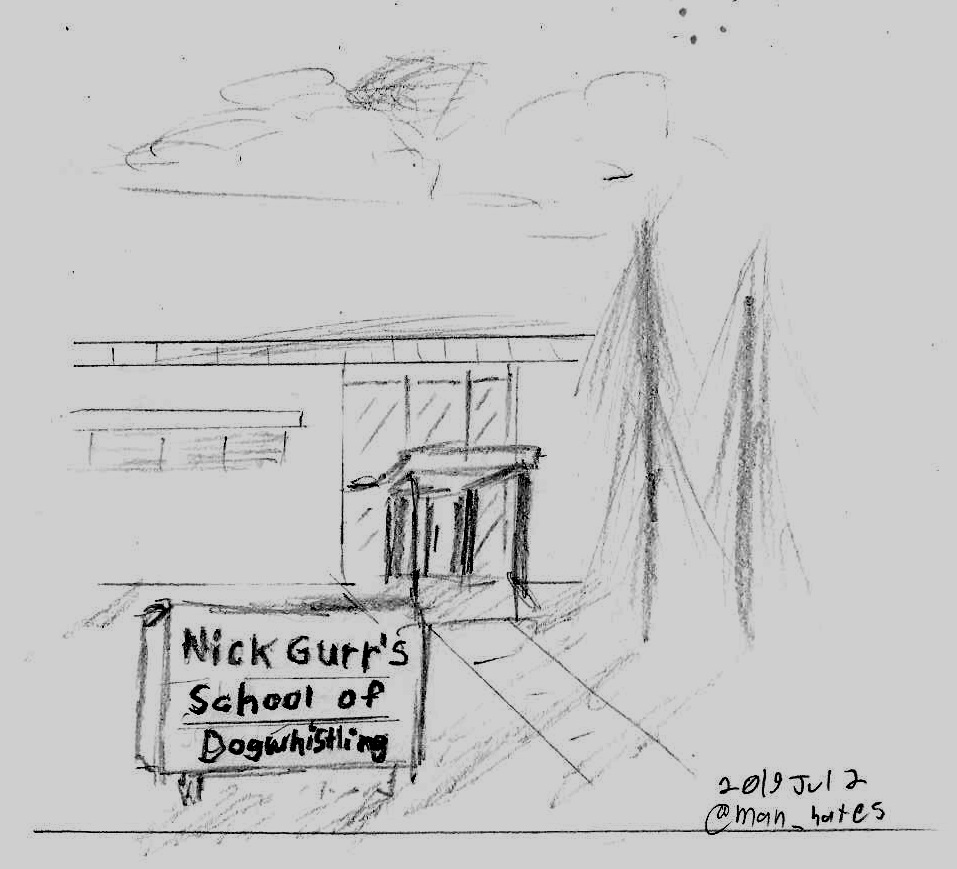 Nick Gurr's
School of
Dogwhistling
2019 Jul 2
@man_hates